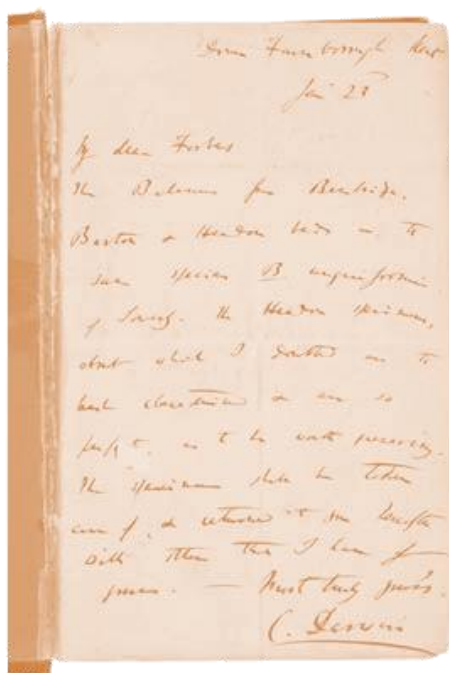 Down Farnborough Kent
Jan 23
My dear Forbes
The Balanus from Bembridge,
Barton & Headon beds is the
same species B unguiformis
of Sowerby. The Headon specimens,
about which I doubted is the
best characterised & are so
perfect, as to be worth preserving.
The specimens shall be taken
care of, & returned to you
with others that I have of
yours. — Most truly yours.
C. Darwin